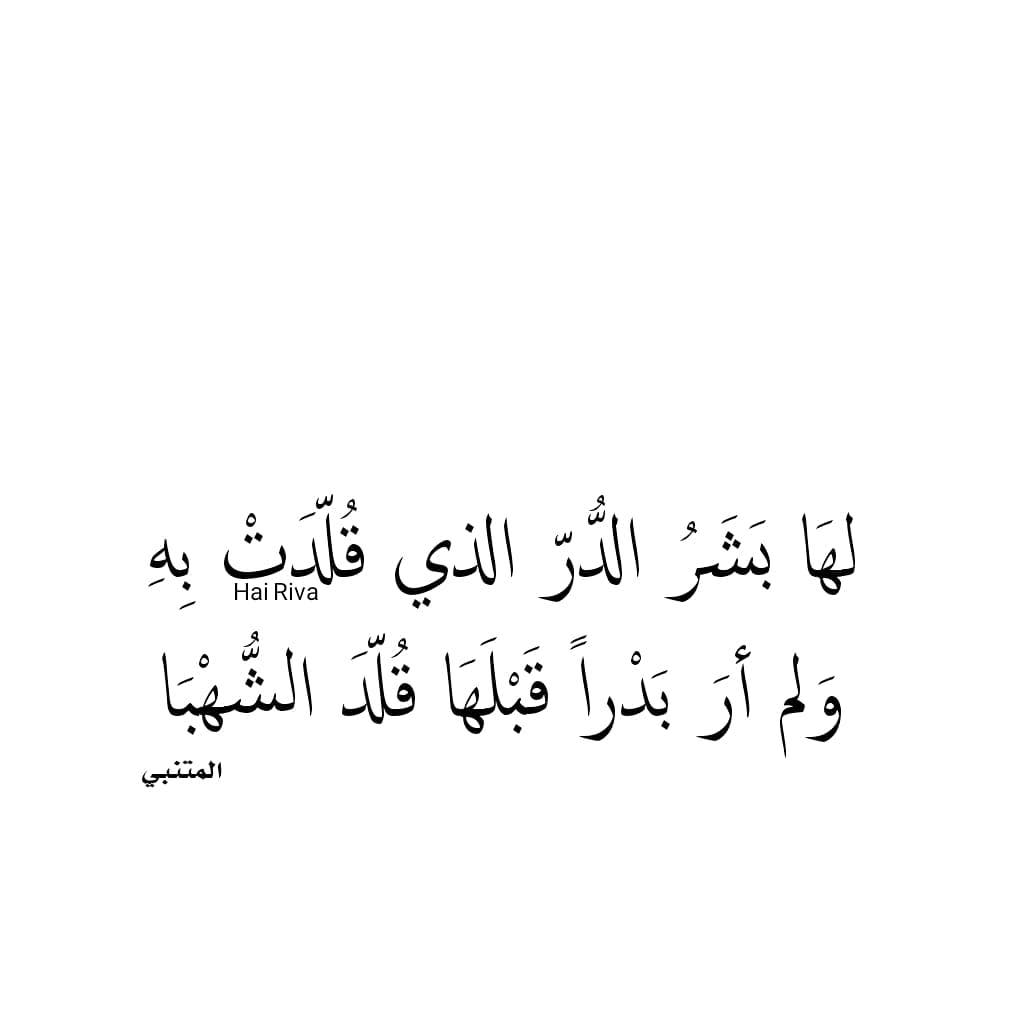 لهَا بَشَرُ الدُّرّ الذي قُلّدَتْ بِهِ
Hai Riva
وَلم أرَ بَدْراً قَبْلَهَا قُلّدَ الشُّهْبَا
المتنبي